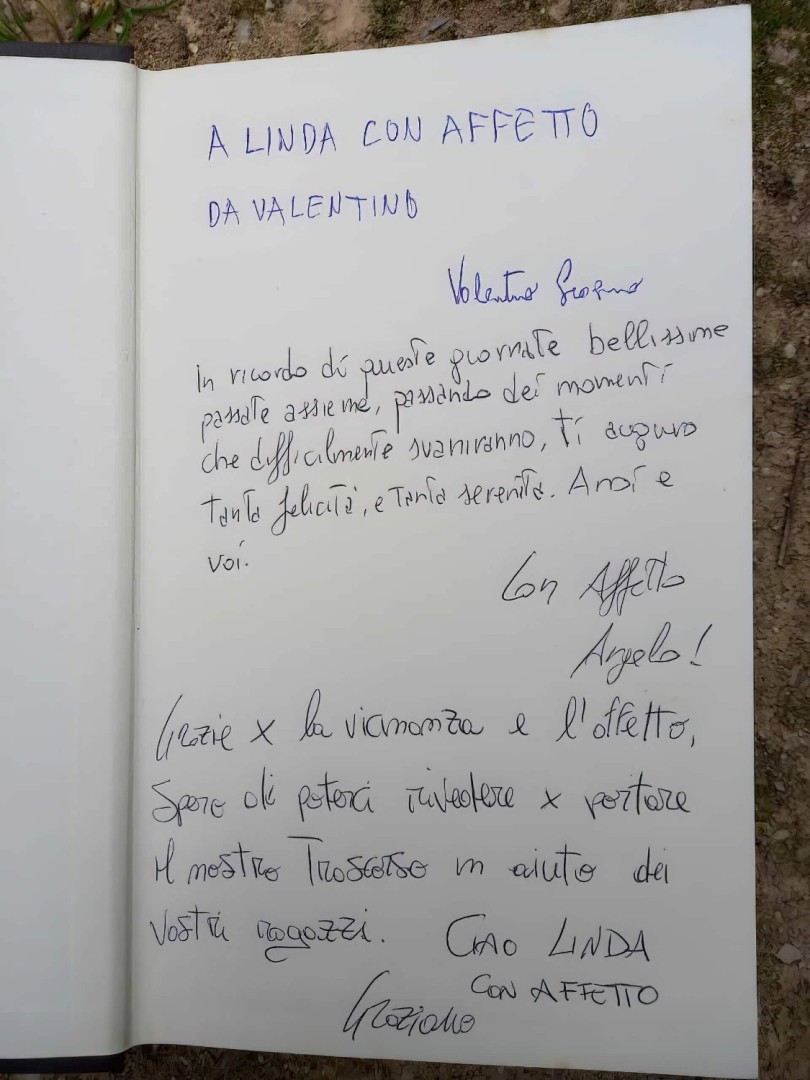 A LINDA CON AFFETTO
DA VALENTINO
Valentino
In ricordo di queste giornate bellissime
passate assieme, passando dei momenti
che difficilmente svaniranno, ti auguro
tanta felicità, e tanta serenità. A noi e
voi.
Con Affetto
Angelo!
Grazie x la vicinanza e l'affetto,
Spero di poterci rivedere x portare
il nostro Trascorso in aiuto dei
vostri ragazzi. CIAO LINDA
CON AFFETTO
Graziano